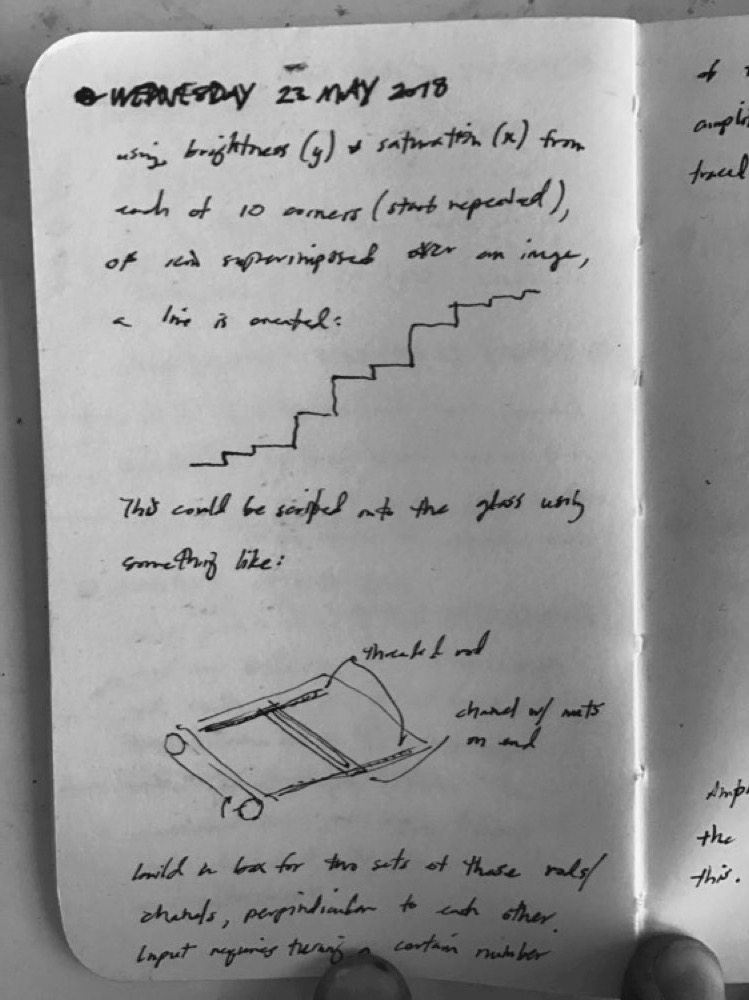 WEDNESDAY 23 MAY 2018
using brightness (y) & saturation (x) from
each of 10 corners (start repeated),
of superimposed over an image,
a line is created:
This could be scribed onto the glass using
something like:
threaded rod
channel w/ nuts
on end
build a box for two sets of these rods/
channels, perpindicular to each other.
Input requires turning a certain number
of
traced
the
this.